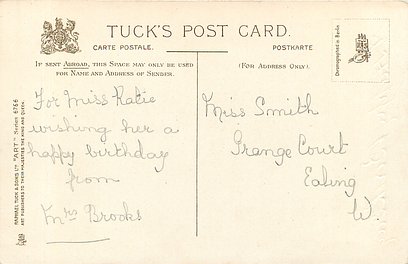 TUCK'S POST CARD.
CARTE POSTALE.
POSTKARTE
IF SENT ABROAD, THIS SPACE MAY ONLY BE USED
FOR NAME AND ADDRESS OF SENDER.
(FOR ADDRESS ONLY).
For Miss Katie
wishing her a
happy birthday
from
Mrs Brooks
Miss Smith
Grange Court
Ealing
W.
RAPHAEL TUCK & SONS LTD "ART" Series 6766
ART PUBLISHERS TO THEIR MAJESTIES THE KING AND QUEEN.
Chromographed in Berlin